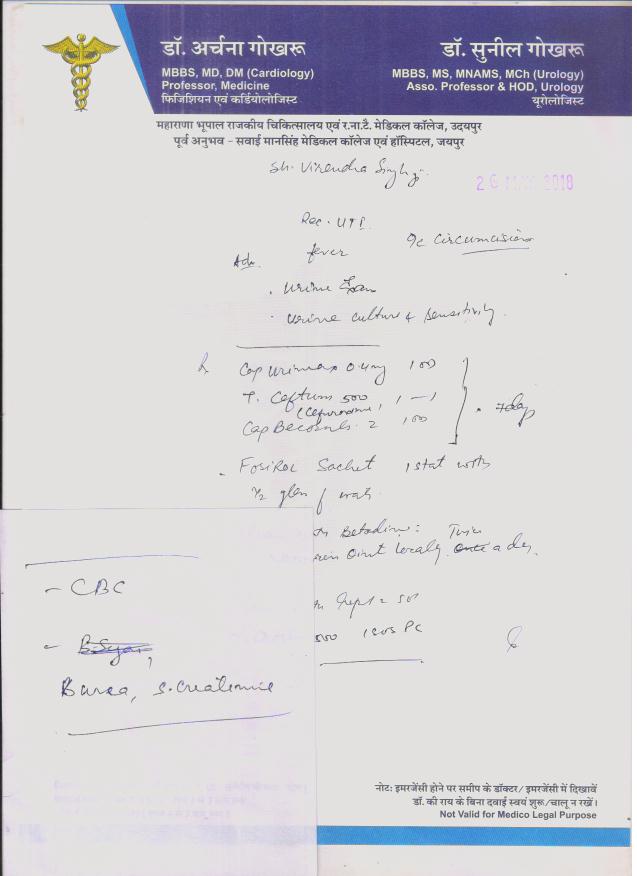 डॉ. अर्चना गोखरू
MBBS, MD, DM (Cardiology)
Professor, Medicine
फिजिशियन एवं कर्डियोलोजिस्ट
डॉ. सुनील गोखरू
MBBS, MS, MNAMS, MCh (Urology)
Asso. Professor & HOD, Urology
यूरोलोजिस्ट
महाराणा भूपाल राजकीय चिकित्सालय एवं र.ना.टै. मेडिकल कॉलेज, उदयपुर
पूर्व अनुभव - सवाई मानसिंह मेडिकल कॉलेज एवं हॉस्पिटल, जयपुर
Sh. Virendra Singh ji.
26 2018
Rec. UTI
fever
circumcision
Adv.
. Urine
. Urine culture & sensitivity.
Cap Urimax 0.4mg 100
T. Ceftum 500 1 - 1
(Cefuroxime)
Cap Becosules 2 100
7 days
- Fosirol Sachet 1 stat with
1/2 glass of water
Betadine: Twice
Oint locally a day.
500 PC
- CBC
-
B urea, S. Creatinine
नोट: इमरजेंसी होने पर समीप के डॉक्टर/ इमरजेंसी में दिखावें
डॉ. की राय के बिना दवाई स्वयं शुरू/चालू न रखें।
Not Valid for Medico Legal Purpose